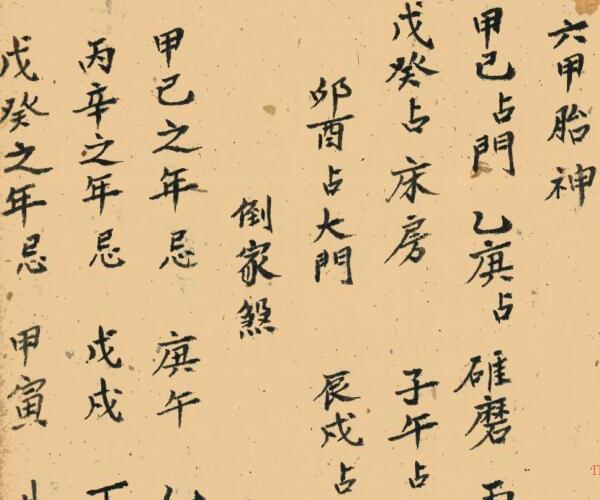 六甲胎神
甲己占門 乙庚占 碓磨
戊癸占 床房 子午占
卯酉占大門 辰戌占
倒家煞
甲己之年忌 庚午
丙辛之年忌 戊戌
戊癸之年忌 甲寅